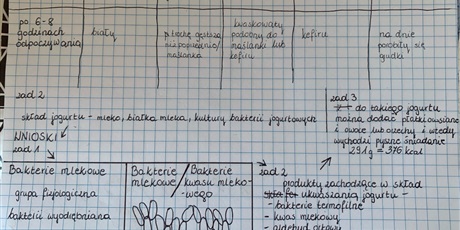 po 6-8
godzinach
odpoczywania
biały
trochę gęstsza
niż poprzednio/
maślanka
kwaskowaty
podobny do
maślanki lub
kefiru
kefiru
na dnie
porobiły się
grudki
zad 2
skład jogurtu - mleko, białka, mleka, kultury bakterii jogurtowych
WNIOSKI
zad 1
zad 3
do takiego jogurtu
można dodać płatki owsiane
i owoce lub orzechy i wtedy
wychodzi pyszne śniadanie
291g = 376 kcal
Bakterie mlekowe
grupa fizjologiczna
bakterii wyodrębniana
Bakterie
mlekowe
/Bakterie
kwasu mleko-
-wego
zad 2
produkty zachodzące w skład
ukwaszania jogurtu -
- bakterie termofilne
- kwas mlekowy
- aldehyd octowy